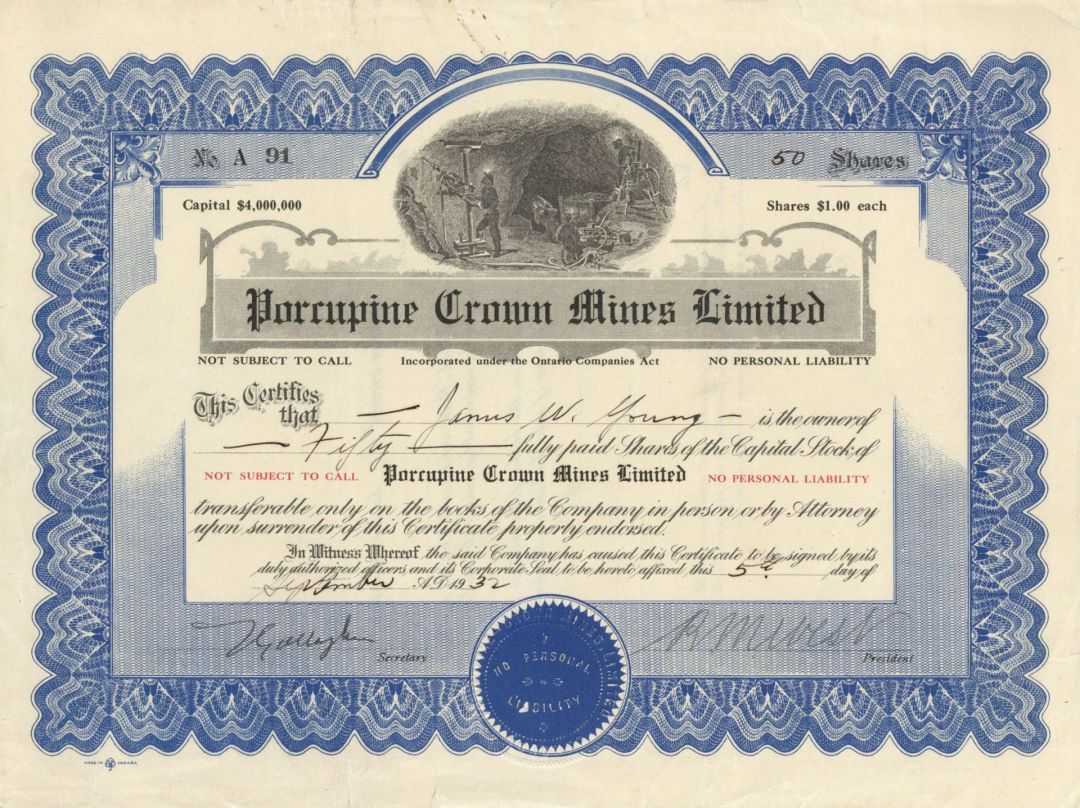 No A 91
50 Shares
Capital $4,000,000
Shares $1.00 each
Porcupine Crown Mines Limited
NOT SUBJECT TO CALL
Incorporated under the Ontario Companies Act
NO PERSONAL LIABILITY
This Certifies that — James W. Young — is the owner of
— Fifty — fully paid Shares of the Capital Stock of
NOT SUBJECT TO CALL Porcupine Crown Mines Limited NO PERSONAL LIABILITY
transferable only on the books of the Company in person or by Attorney
upon surrender of this Certificate properly endorsed.
In Witness Whereof the said Company has caused this Certificate to be signed by its
duly authorized officers and its Corporate Seal to be hereto affixed this 5th day of
September A.D. 1932
Secretary
President
NO PERSONAL
LIABILITY
MADE IN CANADA